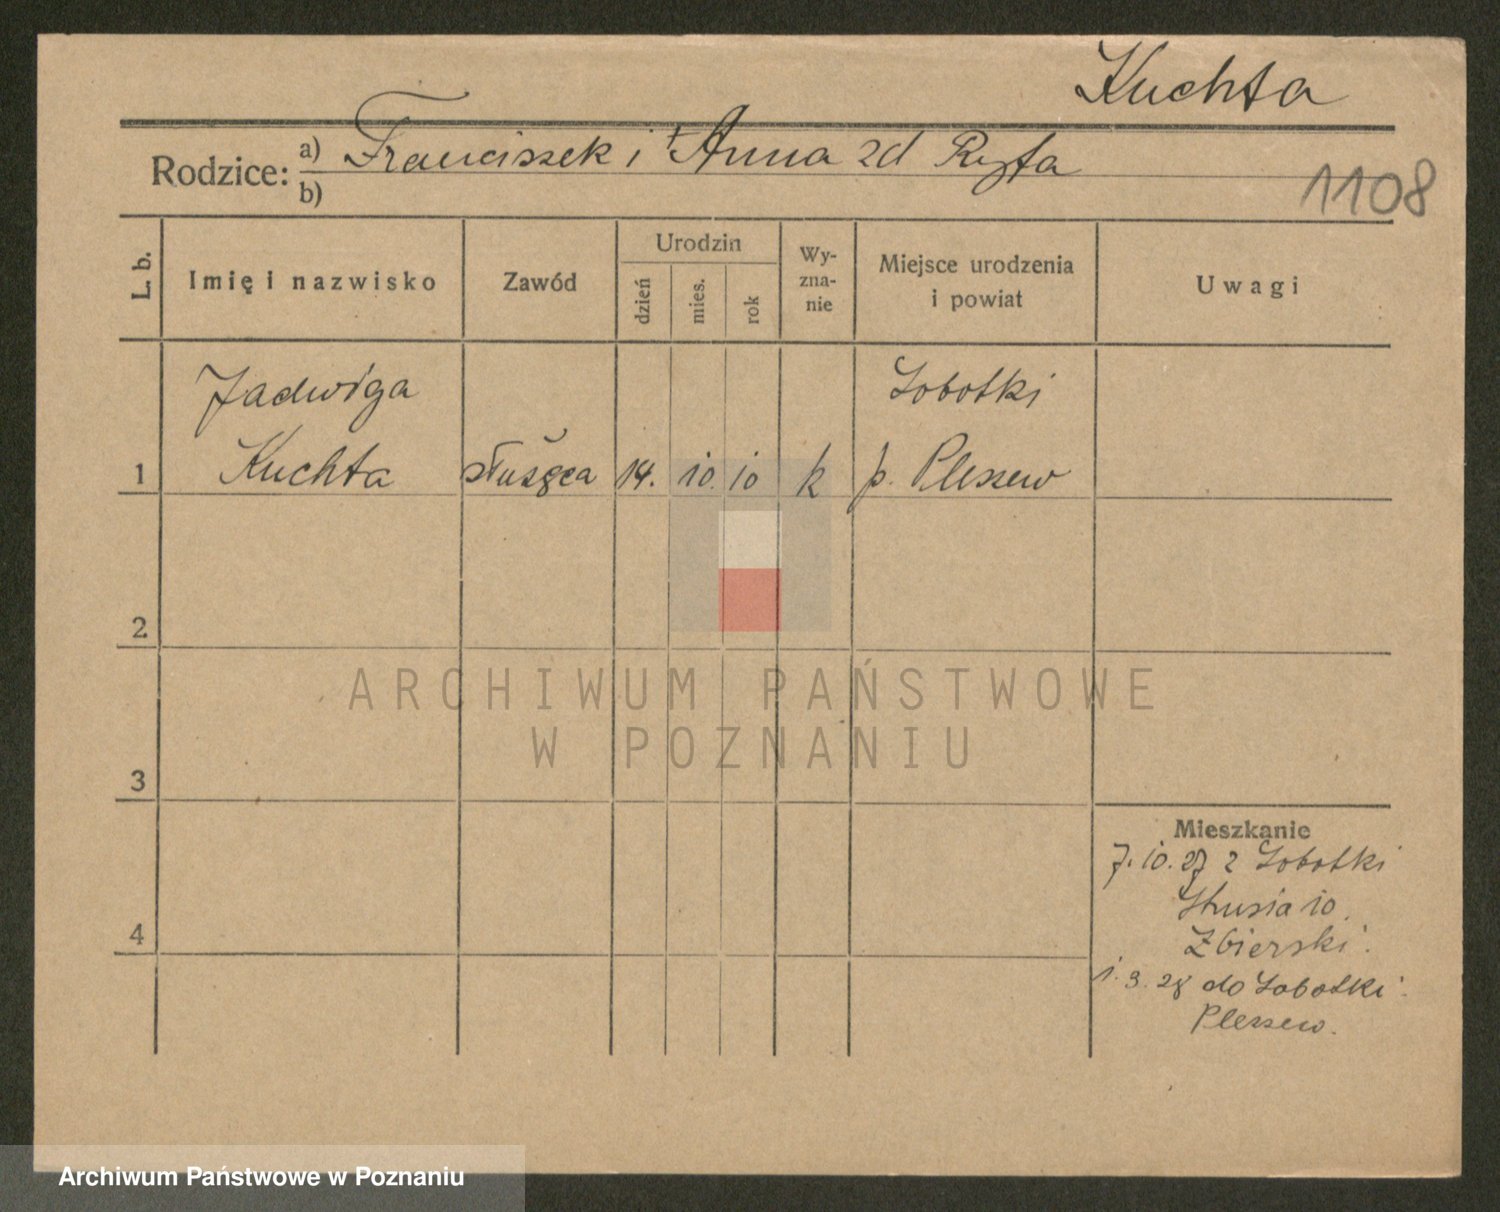 Kuchta
Rodzice: a) Franciszek i † Anna zd Ryta
b)
1108
L. b.
Imię i nazwisko
Zawód
Urodzin
dzień
mies.
rok
Wy-
zna-
nie
Miejsce urodzenia
i powiat
Uwagi
Jadwiga
Sobotki
1 Kuchta służąca 14. 10. 10 k p. Pleszew
2
3
4
Mieszkanie
7.10.27 z Sobotki
10
Zbierski.
1.3.28 do Sobotki.
Pleszew.
ARCHIWUM PAŃSTWOWE
W POZNANIU
Archiwum Państwowe w Poznaniu